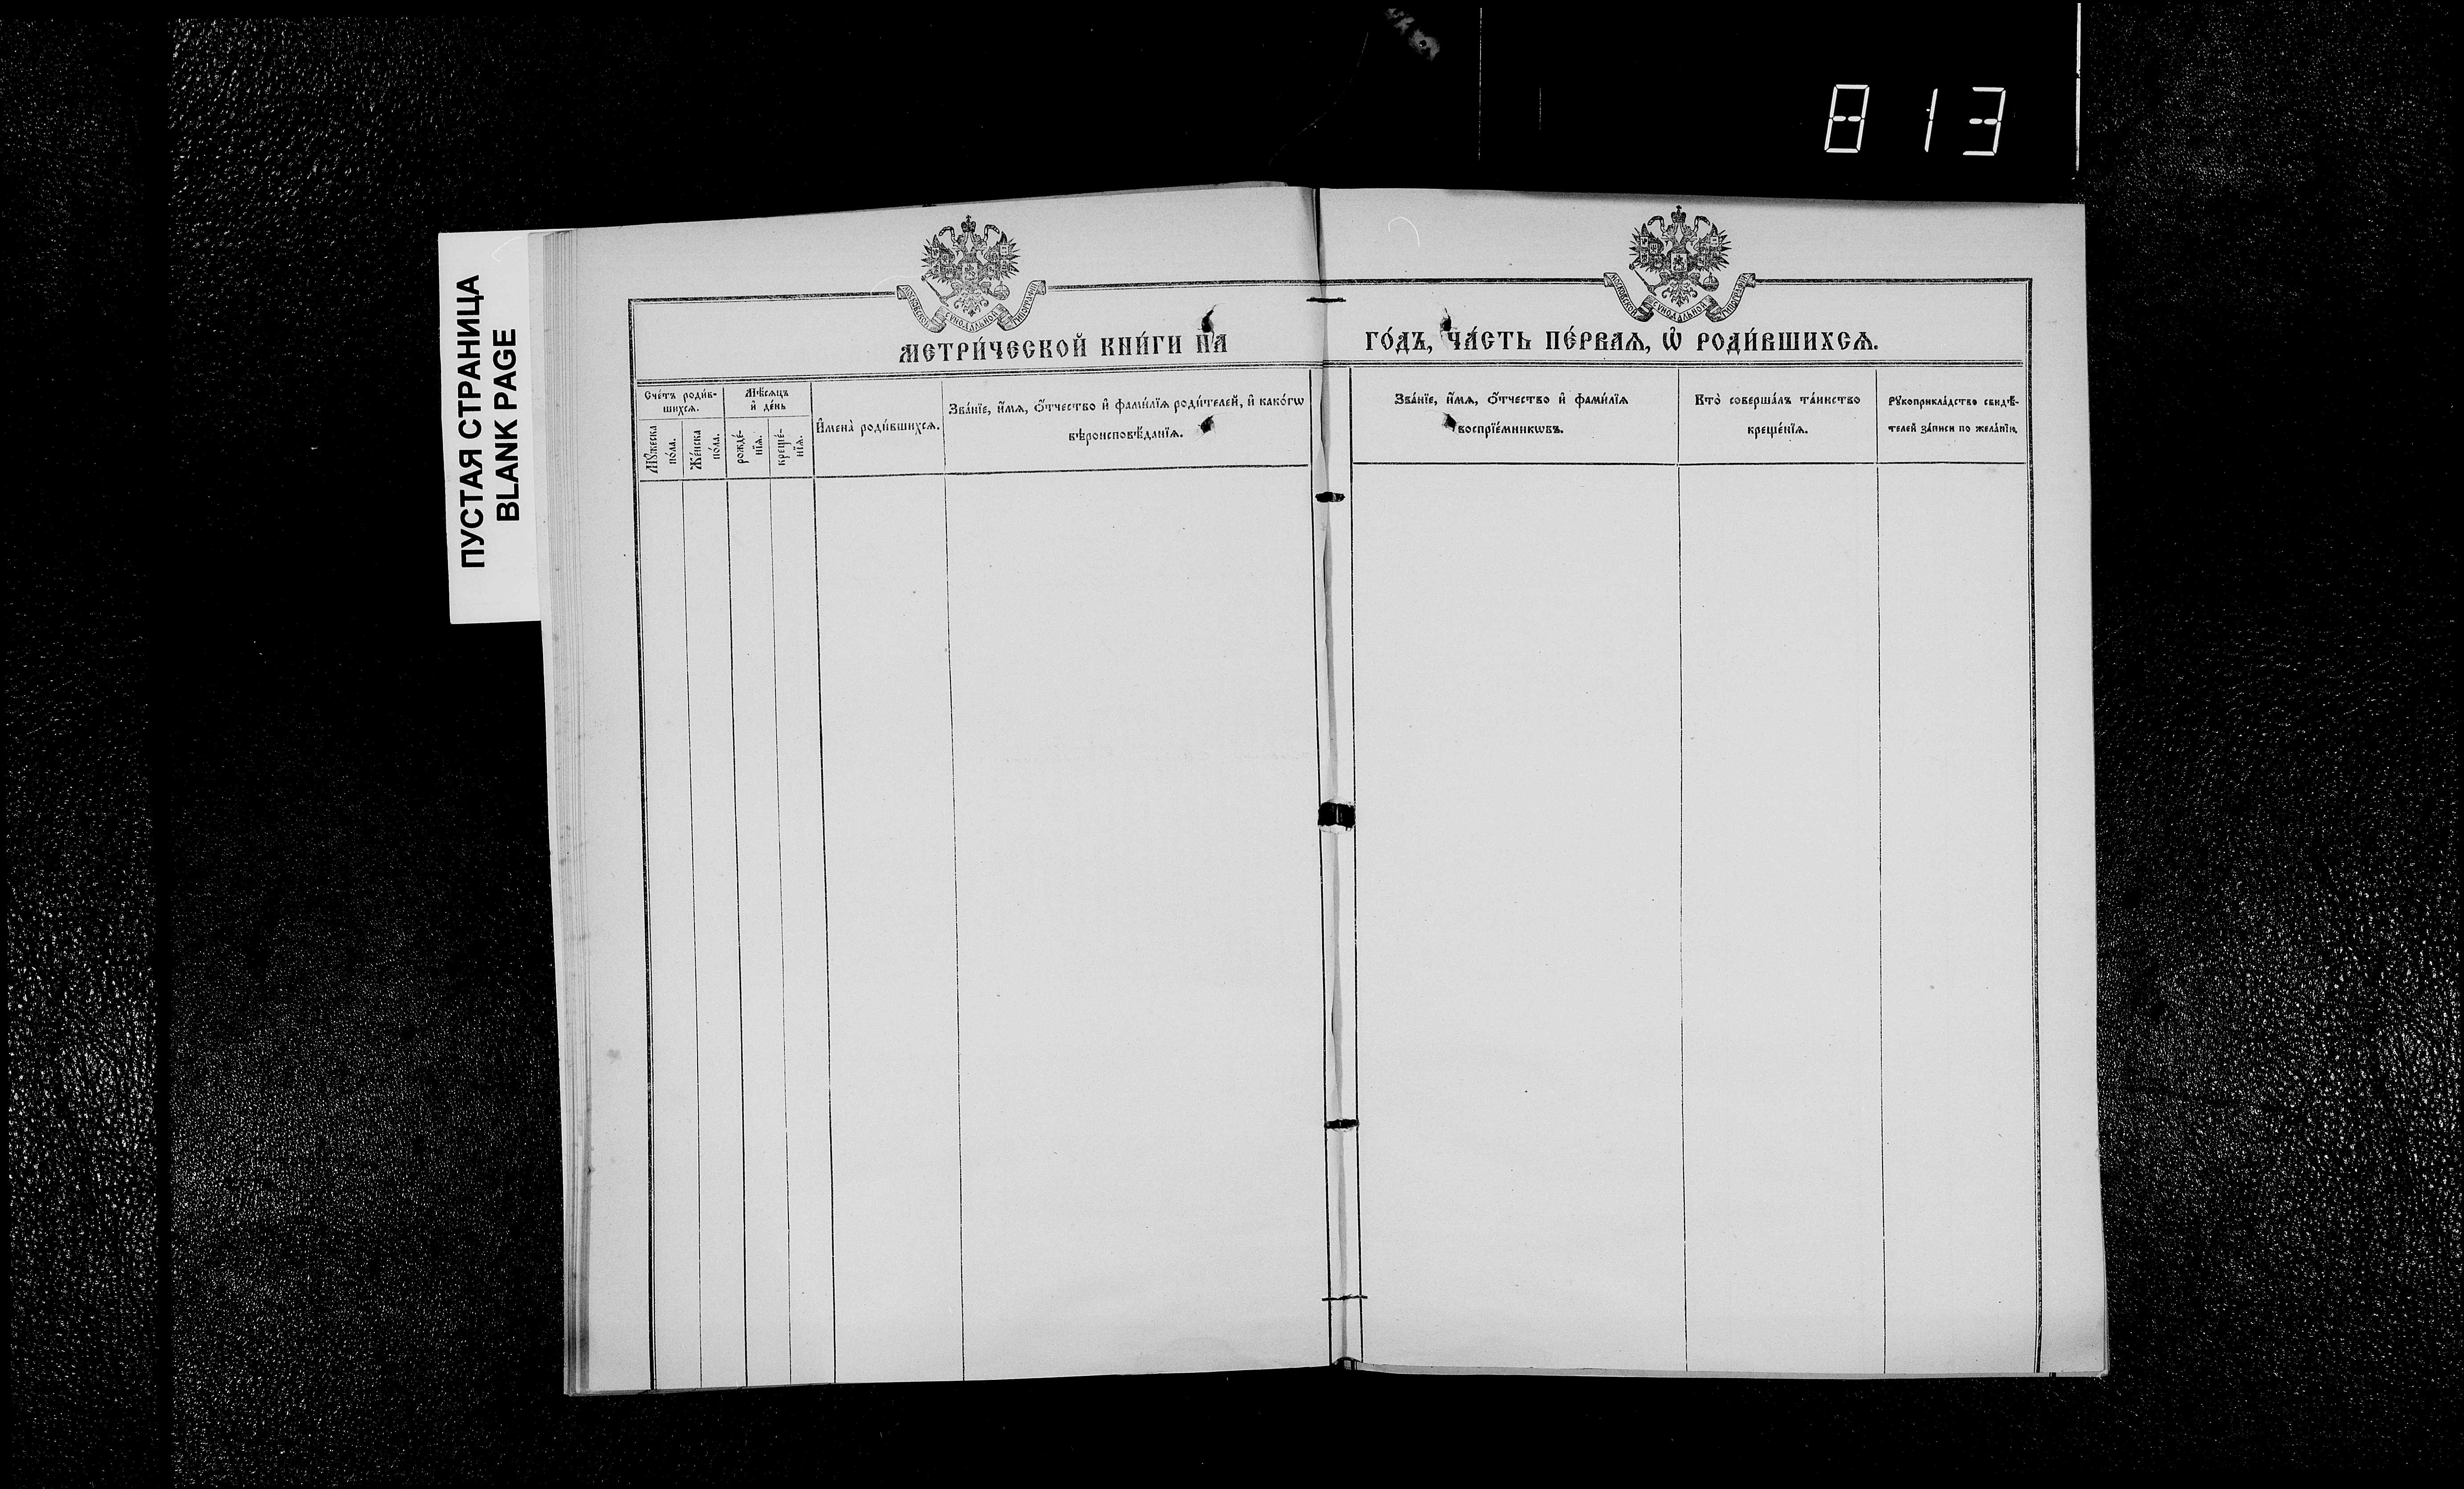 813
ПУСТАЯ СТРАНИЦА
BLANK PAGE
МОСКОВСКОЙ СѴНОДАЛЬНОЙ ТИПОГРАФІИ
МОСКОВСКОЙ СѴНОДАЛЬНОЙ ТИПОГРАФІИ
МЕТРИ́ЧЕСКОЙ КНИ́ГИ НА
ГО́ДЪ, ЧА́СТЬ ПЕ́РВАѦ, Ѽ РОДИ́ВШИХСѦ.
Сче́тъ роди́в-
шихсѧ.
Мꙋ́жеска
по́ла.
Же́нска
по́ла.
Мѣ́сѧцъ
и҆ де́нь
рожде́-
нїѧ.
креще́-
нїѧ.
И҆мена̀ роди́вшихсѧ.
Зва́нїе, и҆́мѧ, ѻ҆́тчество и҆ фами́лїѧ роди́телей, и҆ како́гѡ
вѣроисповѣ́данїѧ.
Зва́нїе, и҆́мѧ, ѻ҆́тчество и҆ фами́лїѧ
воспрїе́мникѡвъ.
Кто̀ соверша́лъ та́инство
креще́нїѧ.
Рꙋкоприкла́дство свидѣ́-
телей за́писи по жела́нїю.